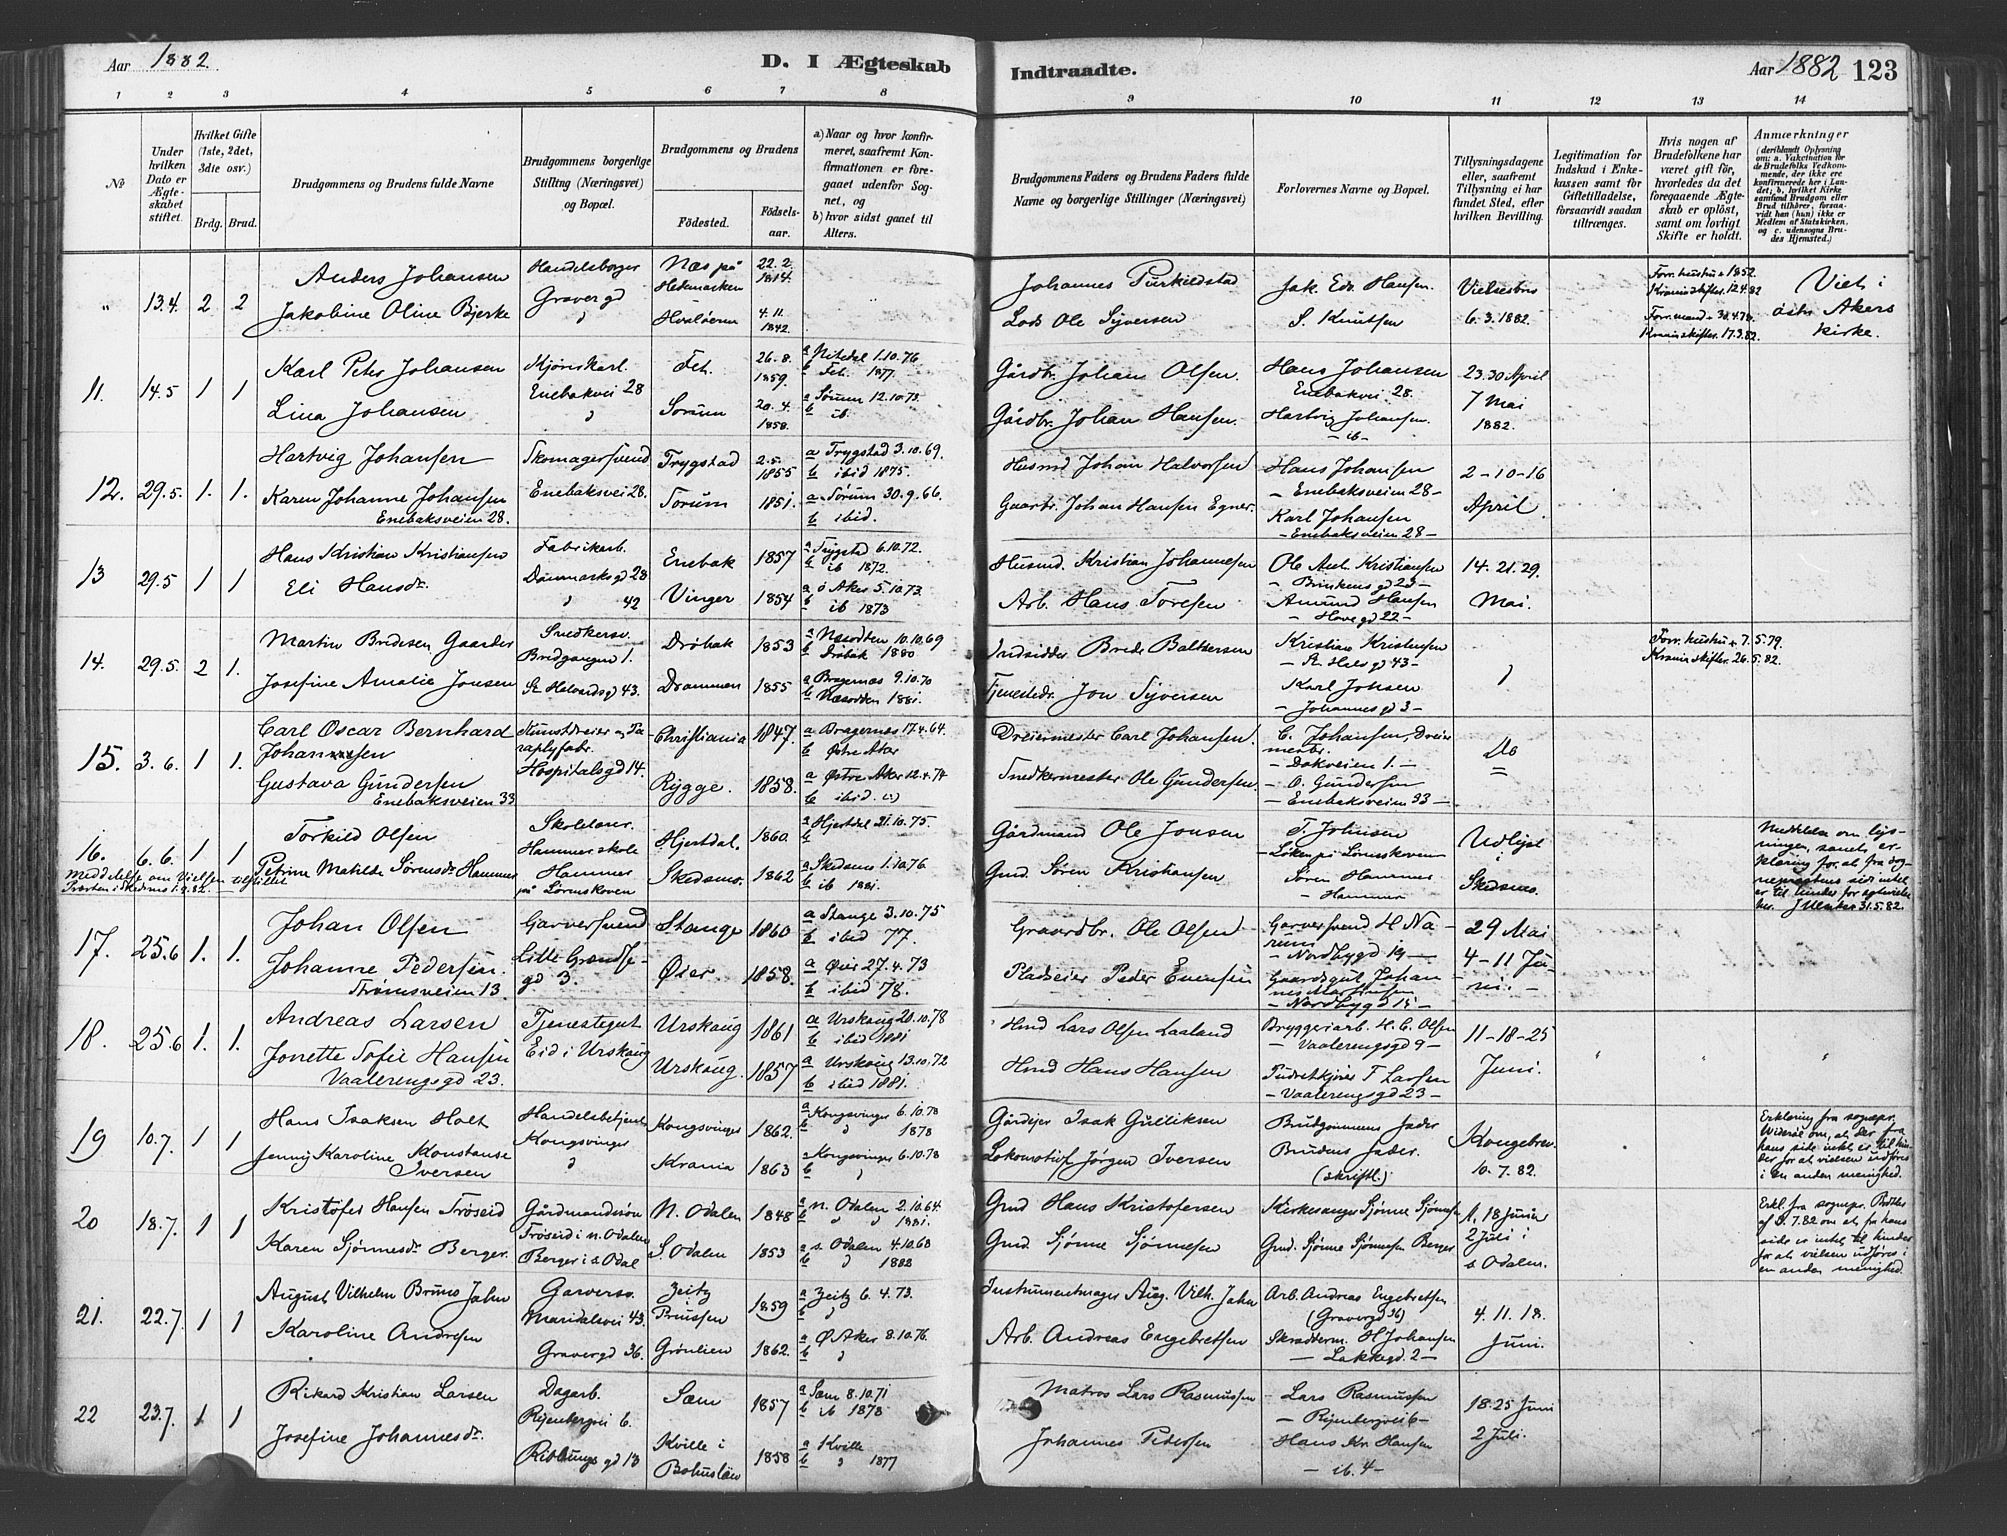 Aar 1882.
D. I Ægteskab
Indtraadte.
Aar 1882 123
1 2 3 4 5 6 7 8 9 10 11 12 13 14
№
Under hvilken Dato er Ægteskabet stiftet.
Hvilket Gifte (1ste, 2det, 3die osv.)
Brdg. Brud.
Brudgommens og Brudens fulde Navne
Brudgommens borgerlige Stilling (Næringsvei) og Bopæl.
Brudgommens og Brudens
Fødested.
Fødselsaar.
a) Naar og hvor konfirmeret, saafremt Konfirmationen er foregaaet udenfor Sognet, og
b) hvor sidst gaaet til Alters.
Brudgommens Faders og Brudens Faders fulde Navne og borgerlige Stillinger (Næringsvei)
Forlovernes Navne og Bopæl.
Tillysningsdagene eller, saafremt Tillysning ei har fundet Sted, efter hvilken Bevilling.
Legitimation for Indskud i Enkekassen samt for Giftetilladelse, forsaavidt saadan tiltrænges.
Hvis nogen af Brudefolkene har været gift før, hvorledes da det foregaaende Ægteskab er opløst, samt om lovligt Skifte er holdt.
Anmærkninger (deriblandt Oplysning om: a. Vaksination for de Brudefolks Vedkommende, der ikke ere konfirmerede her i Landet; b. hvilket Kirke samfund Brudgom eller Brud tilhører, forsaavidt han (hun) ikke er Medlem af Statskirken, og c. udensogns Brudes Hjemsted.)
" 13.4. 2 2
Anders Johansen
Jakobine Oline Bjerke
Handelsborger
Gravergd
Næs på Hedemarken 22.2. 1814.
4.11. 1842.
Johannes Purkildstad
Lods Ole Syversen
Jak. Edv. Hansen.
S. Knutsen
Vielsesbrev
6.3.1882.
Forr. hustru + 1852.
Kraniaskifter. 12.4.82
Forr. mand + 30.4.78.
Kraniaskifter. 17.3.82.
Viet i
østre Akers
kirke.
11. 14.5 1 1
Karl Peter Johansen
Lina Johansen
Enebakvei 28
Fet. 26.8. 1859.
Sørum 20.4. 1858.
a Nitedal 1.10.76
b Fet. 1877.
a Sørum 12.10.73.
b ib.
Gårdbr. Johan Olsen.
Gårdbr. Johan Hansen.
Hans Johansen
Enebakvei 28.
Hartvig Johansen.
- ib -
23.30 April
7 Mai
1882.
12. 29.5. 1. 1.
Hartvig Johansen
Karen Johanne Johansen
Enebaksveien 28.
Skomagersvend
Enebaksvei 28.
Trygstad 2.5. 1855
Sørum 1851.
a Trygstad 3.10.69.
b ibid 1875.
a Sørum 30.9.66.
b ibid.
Husmd Johan Halvorsen
Gaarbr. Johan Hansen Egner.
Hans Johansen
- Enebaksveien 28 -
Karl Johansen
- Enebaksveien 28 -
2-10-16
April
13 29.5 1 1
Hans Kristian Kristiansen
Eli Hansdr.
Fabrikarb.
Danmarksgd 28
" 42
Enebak 1857
Vinger 1854
a Trygstad 6.10.72.
b ib 1872.
a Ø Aker 5.10.73.
b ib 1873
Husmd. Kristian Johannesen
Arb. Hans Toresen
Ole Ant. Kristiansen
- Brinkens gd 23 -
Amund Hansen
- Hovegd 22 -
14.21.29.
Mai.
14. 29.5. 2 1.
Martin Bredesen Gaarder
Josefine Amalie Jonsen
Snedkersv.
Bredgangen 1.
St. Halvardsgd 43.
Drøbak 1853
Drammen 1855
a Næsodden 10.10.69
b Drøbak 1880
a Bragernes 9.10.70
b Næsodden 1881.
Indsidder Brede Baltzersen
Tjenestedr. Jon Syversen
Kristian Kristensen
- St. Halv gd 43 -
Karl Jonsen
- Johannes gd 3 -
"
Forr. hustru + 7.5.79.
Krania skifter. 26.5.82.
15. 3.6. 1 1.
Carl Oscar Bernhard
Johannsen
Gustava Gundersen
Enebaksveien 33
Kunstdreier og Paraplyfabr.
Hospitalsgd 14.
Christiania 1847.
Rygge. 1858.
a Bragernes 17.4.64.
b Østre Aker
a Østre Aker 12.4.74
b ibid.
Dreiermester Carl Johansen.
Snedkermester Ole Gundersen.
C. Johansen, Dreiermester.
- Dokveien 1. -
- O. Gundersen
- Enebaksveien 33 -
Do
=
16. 6.6. 1 1
Torkild Olsen
Petrine Matilde Sørensdr. Hammer
Meddelelse om Vielsen tilstillet
Presten i Skedsmo 1.9.82.
Skolelærer.
Hammer skole
Hammer
på Lørenskoven
Hjertdal. 1860.
Skedsmo. 1862
a Hjertdal 21.10.75.
b
a Skedsmo 1.10.76
b ib 1881.
Gårdmand Ole Jonsen
Gmd. Søren Kristiansen
T. Johnsen
Løken på Lørenskoven
Søren Hammer
- Hammer
Udlyst
i
Skedsmo.
Meddelelse om lysningen, samt erklæring for at fra sognepræstens side intet er til hinder for ægtevielse her. 31.5.82.
17. 25.6 1. 1.
Johan Olsen
Johanne Pedersen.
Strømsveien 13.
Garversvend
Lille Grændsegd 3.
Stange 1860
Øier. 1858.
a Stange 3.10.75
b ibid 77.
a Øier 27.4.73
b ibid 78.
Graardbr. Ole Olsen
Pladseier Peder Evensen
Garversvend H Narum
- Nordbygd 19 -
Gaardsgut Johannes Martinsen
- Nordbygd 15 -
29 Mai
4-11 Juni. -
18. 25.6 1. 1.
Andreas Larsen
Jonette Sofie Hansen
Vaalerengsgd 23.
Tjenestegut
Eid i Urskoug
Urskoug 1861
Urskoug. 1857
a Urskoug 20.10.78
b ibid 1881
a Urskoug 13.10.72
b ibid 1881.
Hmd Lars Olsen Laaland
Hmd Hans Hansen
Bryggeriarb. H. C. Olsen
- Vaalerengsgd 9 -
Pudretkjører T Larsen
- Vaalerengsgd 23 -
11-18-25
Juni.
" "
19 10.7. 1 1
Hans Isaksen Holt
Jenny Karoline Konstanse
Iversen
Handelsbetjent
Kongsvinger
"
Kongsvinger 1862.
Krania 1863
a Kongsvinger 6.10.78
b " 1878
a Kongsvinger 6.10.78
b "
Gårdejer Isak Gulliksen
Lokomotivf. Jørgen Iversen
Brudgommens Fader
Brudens Fader.
(skriftl.)
Kongebrev.
10.7.82.
Erklæring fra sognepr. Widerøe om, at der fra hans side intet er til hinder for at vielsen udføres i en anden menighed.
20 18.7. 1 1
Kristofer Hansen Trøseid
Karen Sjønnesdr. Berger.
Gårdmandssøn
Trøseid i n. Odalen
Berger i s. Odal
N. Odalen 1848
S. Odalen 1853
a n. Odalen 2.10.64.
b " " 1881.
a s. Odalen 4.10.68
b " 1882
Gmd Hans Kristofersen
Gmd. Sjønne Sjønnesen
Kirkesanger Sjønne Sjønnesen
Gmd. Sjønne Sjønnesen Berger
11, 18 Juni
2 Juli i
s. Odalen.
Erkl. fra sognepr.
af 5.7.82 om at fra hans side er intet til hinder for at vielsen udføres i en anden menighed.
21. 22.7. 1 1
August Vilhelm Bruno Jahn
Karoline Andresen
Garversv.
Maridalsvei 43.
Gravergd 36.
Zeitz
Preussen 1859
Grønlien 1862.
a Zeitz 6.4.73.
b "
a Ø Aker 8.10.76.
b "
Instrumentmager Aug. Vilh. Jahn
Arb. Andreas Engebretsen
Arb. Andreas Engebretsen
(Gravergd 36)
Skrædderm. H Johansen
- Lakkegd. 2 -
4.11.18.
Juni.
22 23.7. 1 1
Rikard Kristian Larsen
Josefine Johannesdr.
Dagarb.
Ryenbergvei 6.
gd 13
Sæm 1857
Kville i
Bohuslän 1858
a Sæm 8.10.71
b ib 1878
a Kville
b " 1877
Matros Lars Rasmussen
Johannes Petersen
- Lars Rasmussen
- Ryenbergvei 6 -
Hans Kr. Hansen
- ib. 4 -
18.25 Juni
2 Juli.